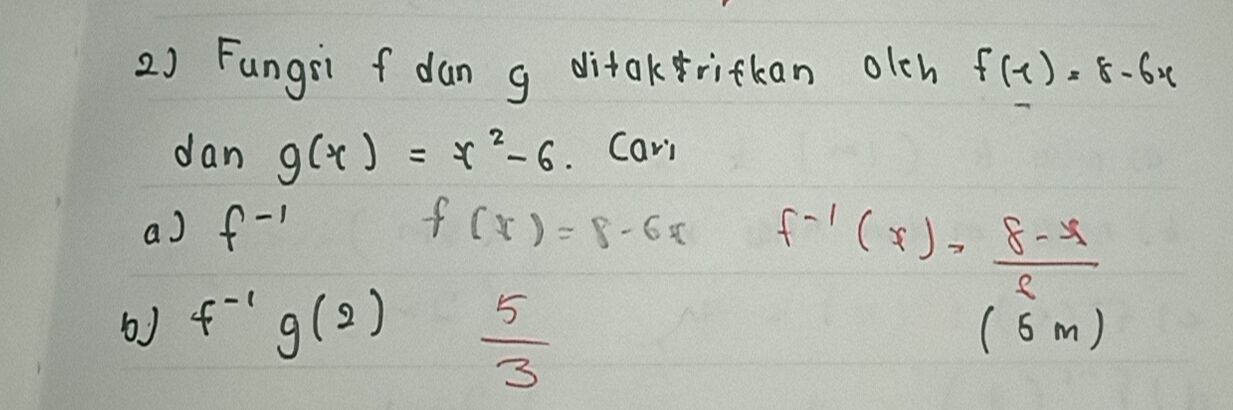 2) Fungsi f dan g ditaktrifkan oleh f(x) = 8-6x
dan g(x) = x²-6. Cari
a) f⁻¹ f(x) = 8-6x f⁻¹(x) = 8-x / 6
b) f⁻¹g(2) 5/3 (5 m)